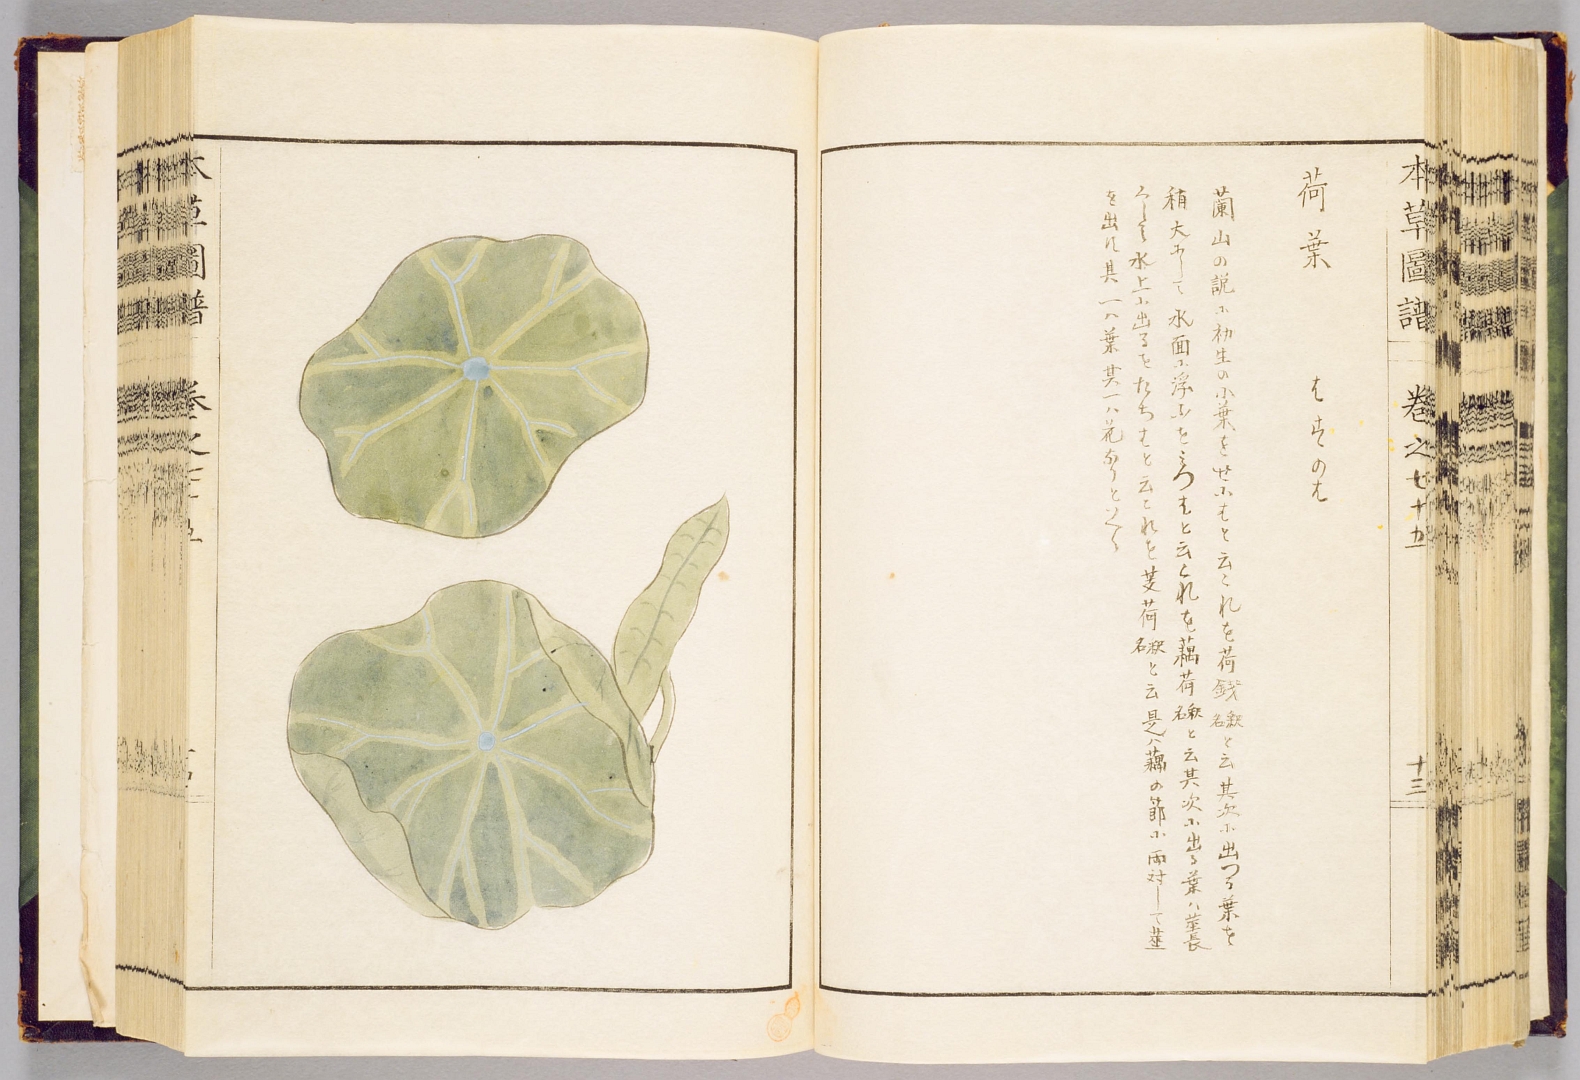 本草圖譜 巻之七十五 十三
荷葉 はすのは
蘭山の説に初生の小葉をせにはと云これを荷錢釈名と云其次に出つる葉を
稍大にして水面に浮ふをみつはと云これを藕荷釈名と云其次に出る葉ハ莖長
くして水上に出るをたちはと云これを芰荷釈名と云是ハ藕の節に両対して莖
を出に其一ハ葉其一ハ花なりといへり
本草圖譜 巻之七十五